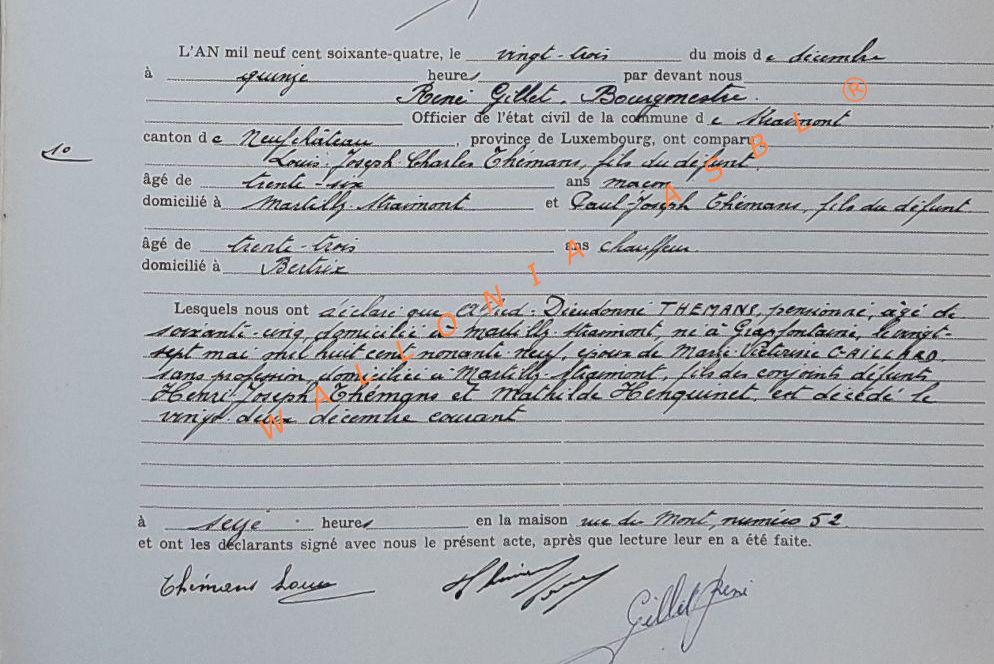 L'AN mil neuf cent soixante-quatre, le vingt-trois du mois de décembre
à quinze heures par devant nous
René Gillet, Bourgmestre.
Officier de l'état civil de la commune de Straimont
canton de Neufchâteau, province de Luxembourg, ont comparu
10
Louis-Joseph Charles Thémans, fils du défunt
âgé de trente-six ans maçon
domicilié à Martilly-Straimont et Paul-Joseph Thémans, fils du défunt
âgé de trente-trois ans chauffeur
domicilié à Bertrix
Lesquels nous ont déclaré que Dieudonné THEMANS, pensionné, âgé de
soixante-cinq, domicilié à Martilly-Straimont, né à Grapfontaine, le vingt-
sept mai mil huit cent nonante neuf, époux de Marie Victorine GAILLARD
sans profession, domiciliée à Martilly-Straimont, fils des conjoints défunts
Henri-Joseph Thémans et Mathilde Henquinet, est décédé le
vingt-deux décembre courant
à seize heures en la maison rue du Mont, numéro 52
et ont les déclarants signé avec nous le présent acte, après que lecture leur en a été faite.
Thémans Louis
Gillet René
WALLONIA ASBL ®